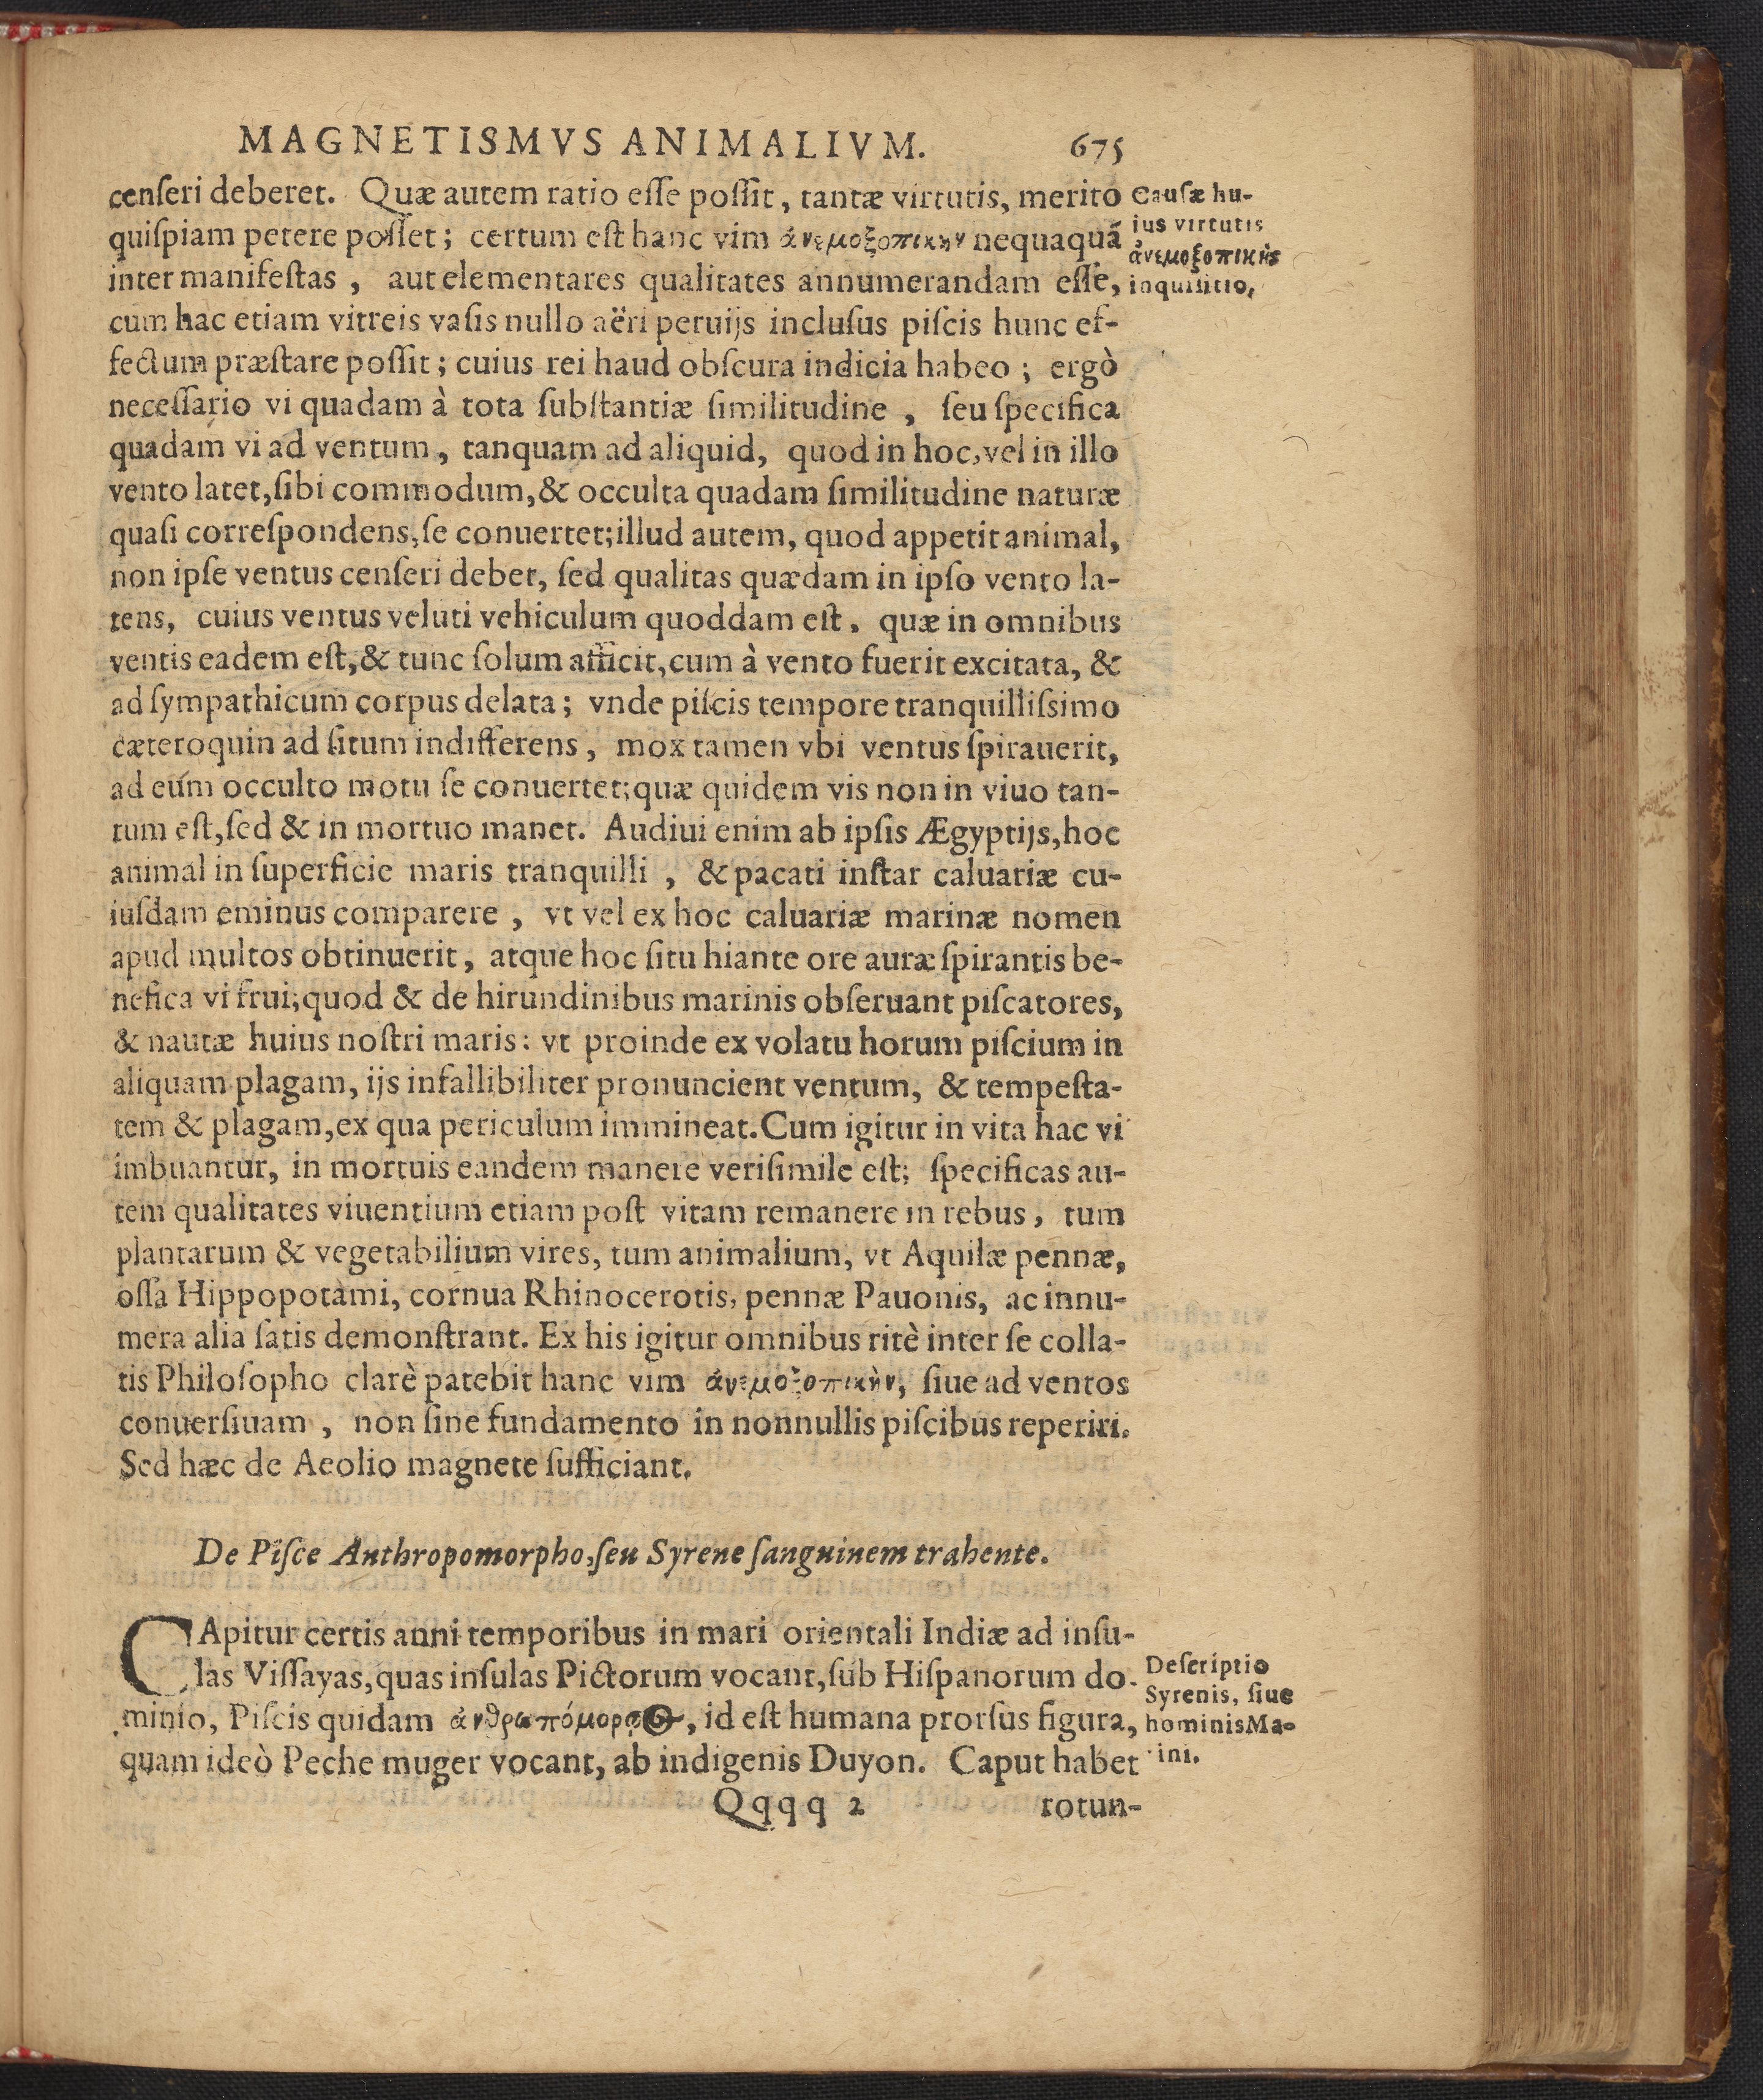 MAGNETISMVS ANIMALIVM. 675
cenſeri deberet. Quæ autem ratio eſſe poſſit, tantæ virtutis, merito
quiſpiam petere poſſet; certum eſt hanc vim ἀνεμοξοπικὴν nequaquā
inter manifeſtas, aut elementares qualitates annumerandam eſſe,
cum hac etiam vitreis vaſis nullo aëri peruijs incluſus piſcis hunc ef-
fectum præſtare poſſit; cuius rei haud obſcura indicia habeo; ergò
neceſſario vi quadam à tota ſubſtantiæ ſimilitudine, ſeu ſpecifica
quadam vi ad ventum, tanquam ad aliquid, quod in hoc, vel in illo
vento latet, ſibi commodum, & occulta quadam ſimilitudine naturæ
quaſi correſpondens, ſe conuertet; illud autem, quod appetit animal,
non ipſe ventus cenſeri debet, ſed qualitas quædam in ipſo vento la-
tens, cuius ventus veluti vehiculum quoddam eſt, quæ in omnibus
ventis eadem eſt, & tunc ſolum afficit, cum à vento fuerit excitata, &
ad ſympathicum corpus delata; vnde piſcis tempore tranquilliſsimo
cæteroquin ad ſitum indifferens, mox tamen vbi ventus ſpirauerit,
ad eúm occulto motu ſe conuertet; quæ quidem vis non in viuo tan-
tum eſt, ſed & in mortuo manet. Audiui enim ab ipſis Ægyptijs, hoc
animal in ſuperficie maris tranquilli, & pacati inſtar caluariæ cu-
iuſdam eminus comparere, vt vel ex hoc caluariæ marinæ nomen
apud multos obtinuerit, atque hoc ſitu hiante ore auræ ſpirantis be-
nefica vi frui; quod & de hirundinibus marinis obſeruant piſcatores,
& nautæ huius noſtri maris: vt proinde ex volatu horum piſcium in
aliquam plagam, ijs infallibiliter pronuncient ventum, & tempeſta-
tem & plagam, ex qua periculum immineat. Cum igitur in vita hac vi
imbuantur, in mortuis eandem manere veriſimile eſt; ſpecificas au-
tem qualitates viuentium etiam poſt vitam remanere in rebus, tum
plantarum & vegetabilium vires, tum animalium, vt Aquilæ pennæ,
oſſa Hippopotàmi, cornua Rhinocerotis, pennæ Pauonis, ac innu-
mera alia ſatis demonſtrant. Ex his igitur omnibus ritè inter ſe colla-
tis Philoſopho clarè patebit hanc vim ἀνεμοξοπικὴν, ſiue ad ventos
conuerſiuam, non ſine fundamento in nonnullis piſcibus reperiri.
Sed hæc de Aeolio magnete ſufficiant.
De Piſce Anthropomorpho, ſeu Syrene ſanguinem trahente.
CApitur certis anni temporibus in mari orientali Indiæ ad inſu-
las Viſſayas, quas inſulas Pictorum vocant, ſub Hiſpanorum do-
minio, Piſcis quidam ἀνθρωπόμορφος, id eſt humana prorſus figura,
quam ideò Peche muger vocant, ab indigenis Duyon. Caput habet
Qqqq 2 rotun-
Cauſæ hu-
ius virtutis
ἀνεμοξοπικῆς
inquiſitio,
Deſcriptio
Syrenis, ſiue
hominis Ma-
ini.